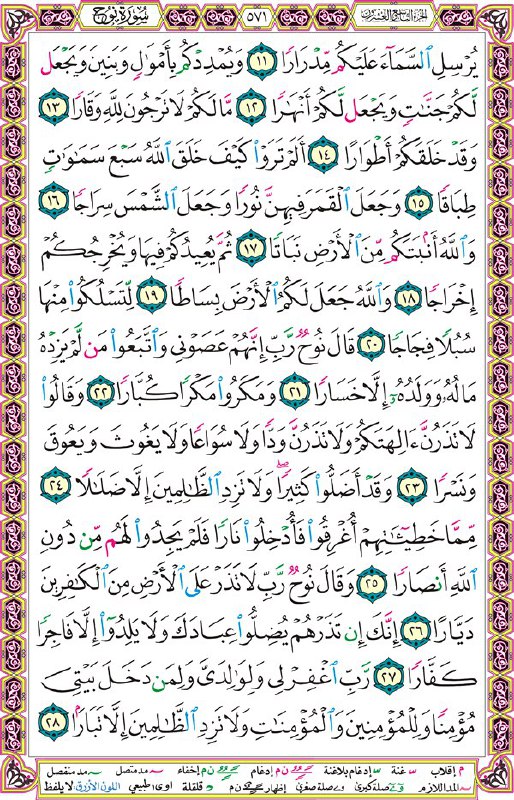 سُورَةُ نُوحٍ ٥٧١ الجزء التاسع والعشرون
يُرْسِلِ ٱلسَّمَآءَ عَلَيْكُم مِّدْرَارًا ١١ وَيُمْدِدْكُم بِأَمْوَٰلٍ وَبَنِينَ وَيَجْعَل
لَّكُمْ جَنَّٰتٍ وَيَجْعَل لَّكُمْ أَنْهَٰرًا ١٢ مَّا لَكُمْ لَا تَرْجُونَ لِلَّهِ وَقَارًا ١٣
وَقَدْ خَلَقَكُمْ أَطْوَارًا ١٤ أَلَمْ تَرَوْا۟ كَيْفَ خَلَقَ ٱللَّهُ سَبْعَ سَمَٰوَٰتٍ
طِبَاقًا ١٥ وَجَعَلَ ٱلْقَمَرَ فِيهِنَّ نُورًا وَجَعَلَ ٱلشَّمْسَ سِرَاجًا ١٦
وَٱللَّهُ أَنۢبَتَكُم مِّنَ ٱلْأَرْضِ نَبَاتًا ١٧ ثُمَّ يُعِيدُكُمْ فِيهَا وَيُخْرِجُكُمْ
إِخْرَاجًا ١٨ وَٱللَّهُ جَعَلَ لَكُمُ ٱلْأَرْضَ بِسَاطًا ١٩ لِّتَسْلُكُوا۟ مِنْهَا
سُبُلًا فِجَاجًا ٢٠ قَالَ نُوحٌ رَّبِّ إِنَّهُمْ عَصَوْنِى وَٱتَّبَعُوا۟ مَن لَّمْ يَزِدْهُ
مَالُهُۥ وَوَلَدُهُۥٓ إِلَّا خَسَارًا ٢١ وَمَكَرُوا۟ مَكْرًا كُبَّارًا ٢٢ وَقَالُوا۟
لَا تَذَرُنَّ ءَالِهَتَكُمْ وَلَا تَذَرُنَّ وَدًّا وَلَا سُوَاعًا وَلَا يَغُوثَ وَيَعُوقَ
وَنَسْرًا ٢٣ وَقَدْ أَضَلُّوا۟ كَثِيرًا ۖ وَلَا تَزِدِ ٱلظَّٰلِمِينَ إِلَّا ضَلَٰلًا ٢٤
مِّمَّا خَطِيٓـَٰٔتِهِمْ أُغْرِقُوا۟ فَأُدْخِلُوا۟ نَارًا فَلَمْ يَجِدُوا۟ لَهُم مِّن دُونِ
ٱللَّهِ أَنصَارًا ٢٥ وَقَالَ نُوحٌ رَّبِّ لَا تَذَرْ عَلَى ٱلْأَرْضِ مِنَ ٱلْكَٰفِرِينَ
دَيَّارًا ٢٦ إِنَّكَ إِن تَذَرْهُمْ يُضِلُّوا۟ عِبَادَكَ وَلَا يَلِدُوٓا۟ إِلَّا فَاجِرًا
كَفَّارًا ٢٧ رَّبِّ ٱغْفِرْ لِى وَلِوَٰلِدَىَّ وَلِمَن دَخَلَ بَيْتِىَ
مُؤْمِنًا وَلِلْمُؤْمِنِينَ وَٱلْمُؤْمِنَٰتِ وَلَا تَزِدِ ٱلظَّٰلِمِينَ إِلَّا تَبَارًۢا ٢٨
م إقلاب غنة إدغام بلاغنة ن م إدغام ن م إخفاء مد متصل مد منفصل
المد اللازم صلة كبرى صلة صغرى إظهار ن م قلقلة اوى: طبيعي اللون الأزرق لا يلفظ